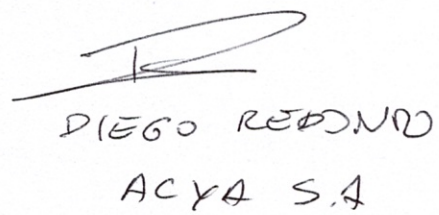 DIEGO REDONDO
ACYA S.A